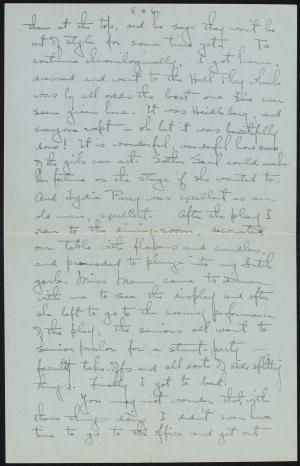 them at the top, and he says they won't be
out of style for some time yet!! To
continue chronologically, I got home,
dressed and went to the Hall Play which
was by all odds the best one I've ever
seen given here. It was Heidelberg, and
everyone wept - oh but it was beautifully
done! It is wonderful, wonderful how some
of the girls can act. Sister Said could make
her fortune on the stage if she wanted to.
And Lydia Parry was excellent as an
old man, excellent. After the play I
ran to the dining-room, decorated
our table with flowers and candles,
and proceeded to plunge into my Dutch
garb. Miss came to dinner
with me to see the display and after
she left to go to the evening performance
of the play, the seniors all went to
senior parlor for a stunt-party
faculty take-offs and all sorts of side splitting
things. Finally I got to bed.
You may not wonder that with
these things doing I didn't even have
time to go to the office and get out